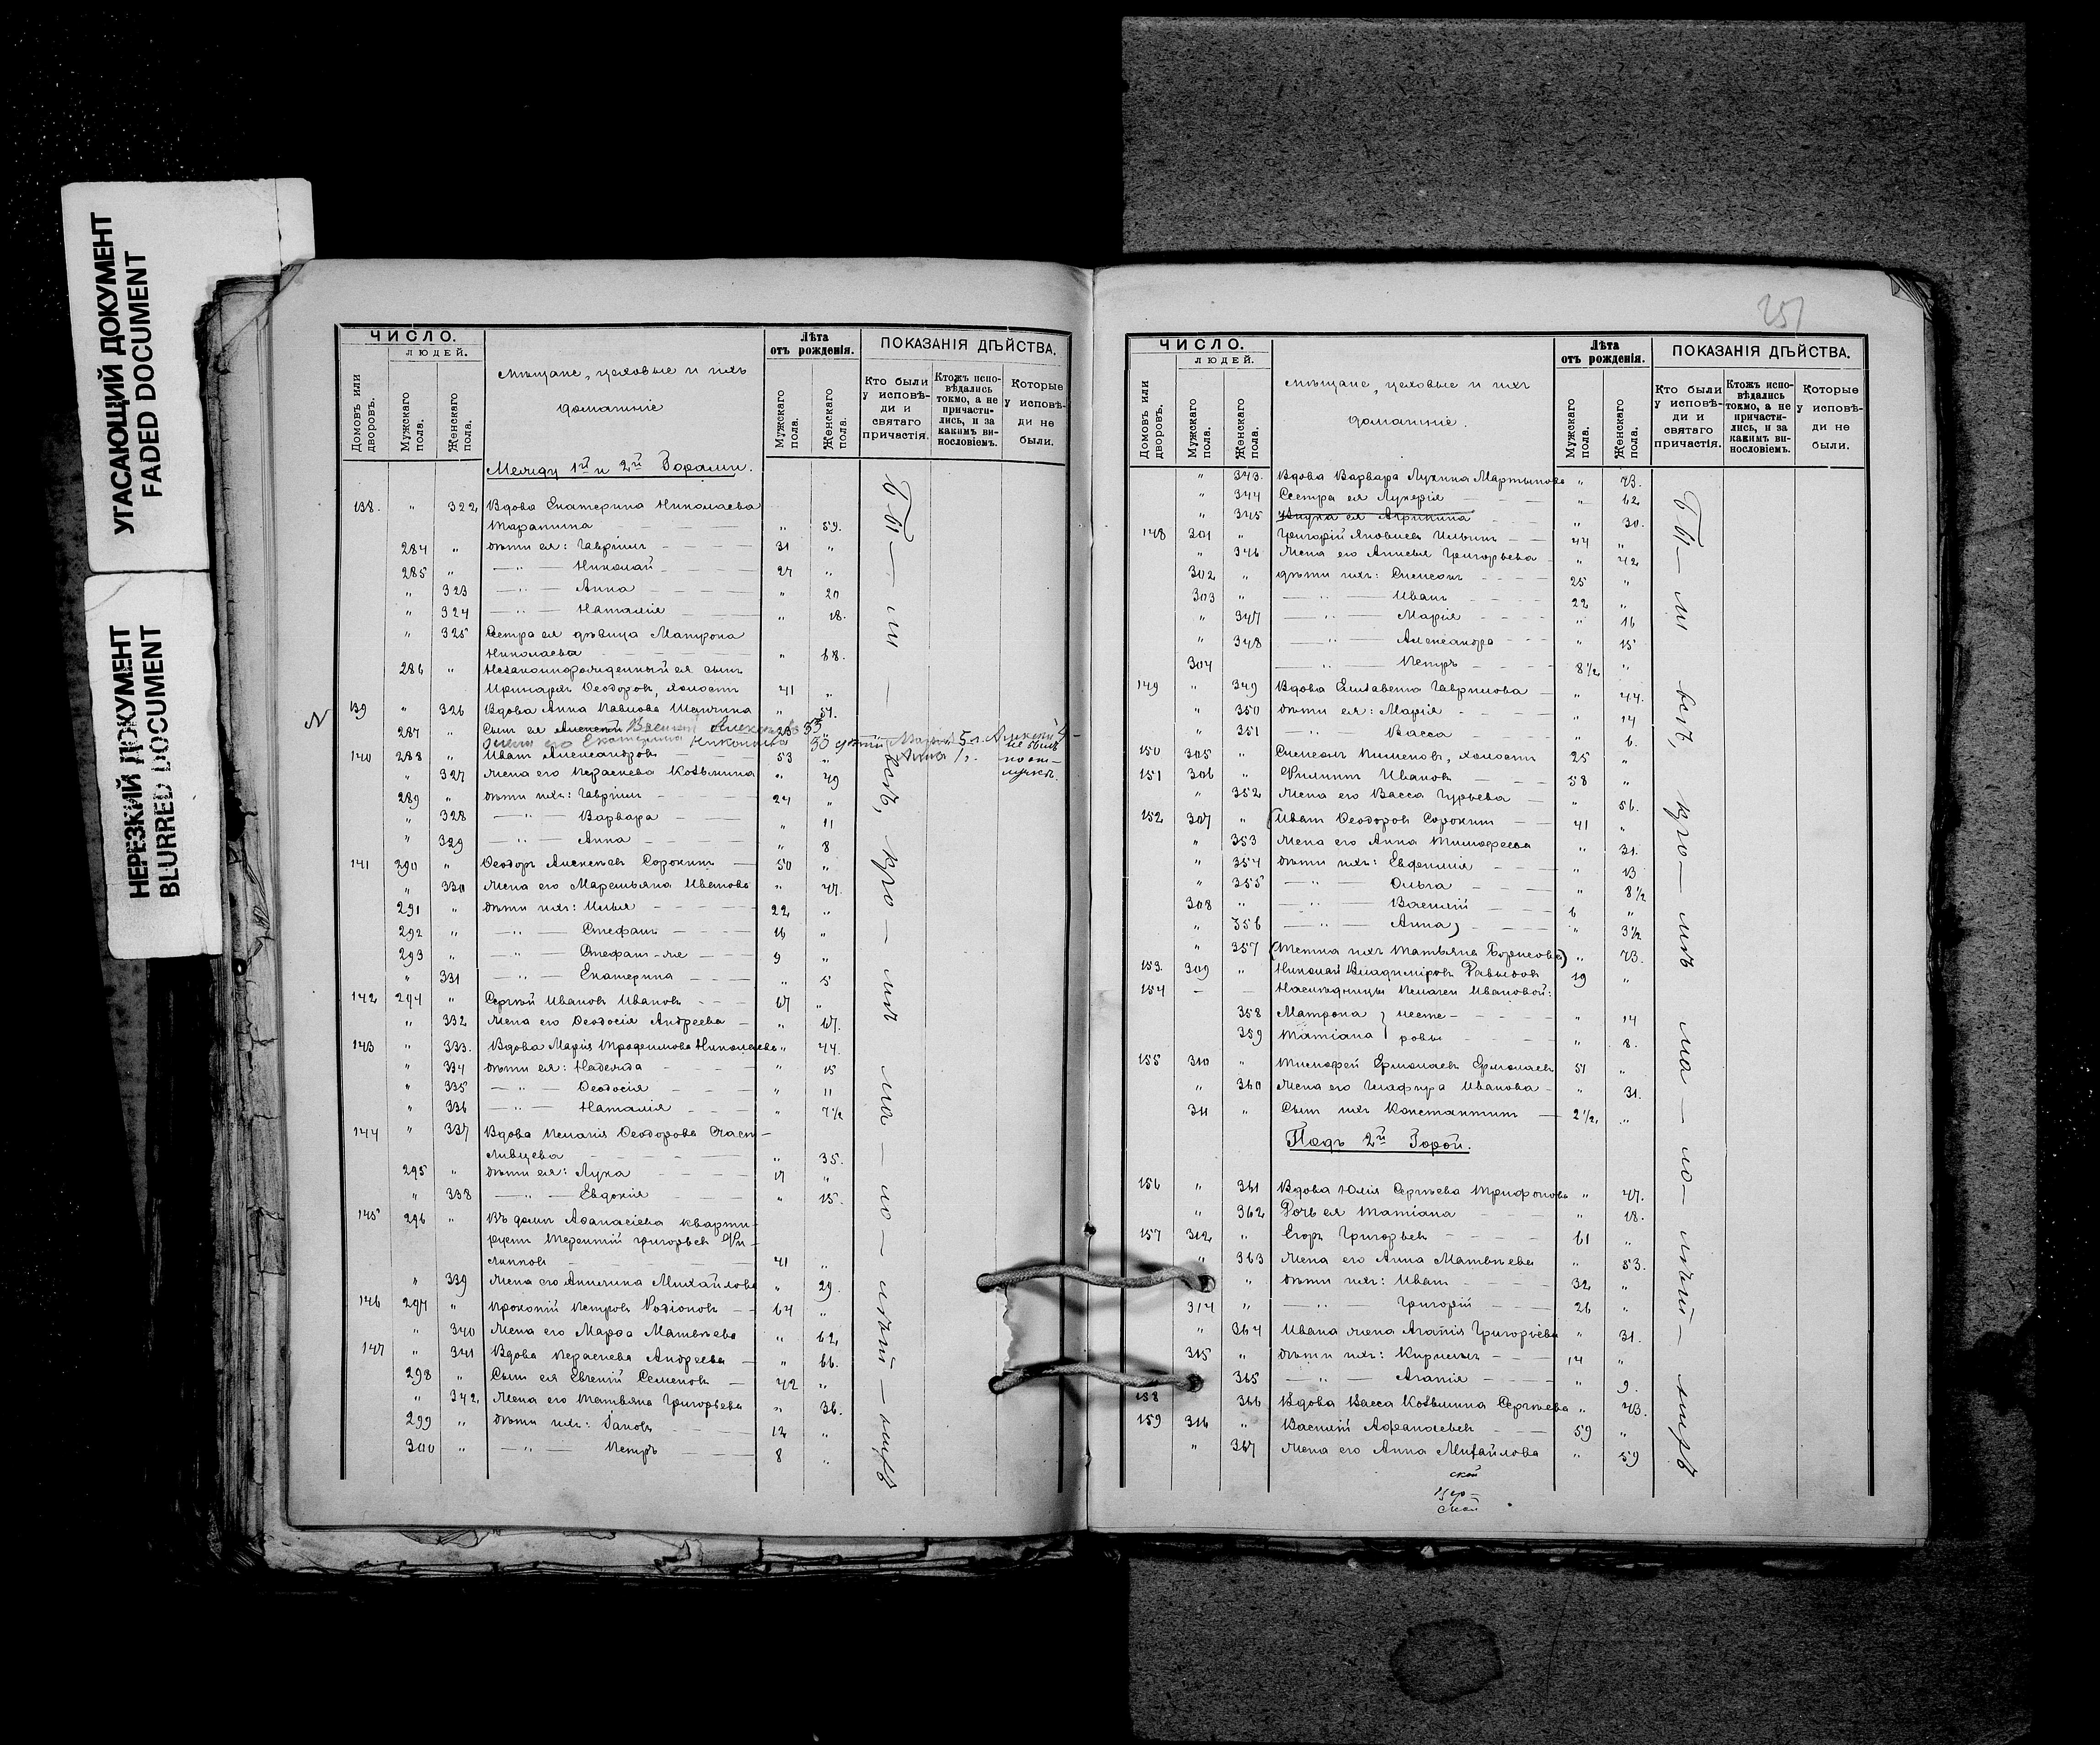 УГАСАЮЩИЙ ДОКУМЕНТ
FADED DOCUMENT
НЕРЕЗКИЙ ДОКУМЕНТ
BLURRED DOCUMENT
ЧИСЛО.
ЛЮДЕЙ.
Домовъ или дворовъ.
Мужскаго пола.
Женскаго пола.
Мѣщане, цеховые и ихъ
домашніе
Лѣта отъ рожденія.
Мужскаго пола.
Женскаго пола.
ПОКАЗАНІЯ ДѢЙСТВА.
Кто были у исповѣди и святаго причастія.
Ктожъ исповѣдались токмо, а не причастились, и за какимъ винословіемъ.
Которые у исповѣди не были.
Между 1й и 2й Горами.
138. " 322 Вдова Екатерина Николаева
" 59.
284 " дѣти ея: Гавріилъ 31 "
285 " —"— Николай 27 "
" 323 —"— Анна " 20
" 324 —"— Наталія " 18.
" 325 Сестра ея дѣвица Матрона
Николаева " 68.
286 " Незаконнорожденный ея сынъ
Ѳеодоровъ, холостъ 41 "
139 " 326 Вдова Анна Павлова " 57.
287 " Сынъ ея Алексѣй Василій
Жена его Екатерина 30 дѣти: Марія 5 л. Алексѣй
Анна
не былъ
по от-
лучкѣ.
140 288 " Иванъ Александровъ 53 "
" 327 Жена его Параскева Козьмина " 49
289 " дѣти ихъ: Гавріилъ 24 "
" 328 —"— Варвара " 11
" 329 —"— Анна " 8
141 290 " Ѳеодоръ Алексѣевъ Сорокинъ 50 "
" 330 Жена его Иванова " 47.
291 " дѣти ихъ: Илья 22 "
292 " —"— Стефанъ 16 "
293 " —"— Стефанъ-же 9 "
" 331 —"— Екатерина " 5
142 294 " Сергѣй Ивановъ Ивановъ 67 "
" 332 Жена его Ѳеодосія Андреева " 67.
143 " 333. Вдова Марія Трофимова Николаева " 44.
" 334 дѣти ея: Надежда " 15
" 335 —"— Ѳеодосія " 11
" 336 —"— Наталія " 7½
144 " 337 Вдова Пелагія Ѳеодорова Счаст-
ливцева " 35.
295 " дѣти ея: Лука 17 "
" 338 —"— Евдокія " 15.
145 296 " Въ домѣ Аѳанасіева кварти-
руетъ Терентій Григорьевъ Фи-
липповъ 41 "
" 339 Жена его Акилина Михайлова " 29.
146 297 " Прокопій Петровъ Родіоновъ 64 "
" 340 Жена его Марѳа Матвѣева " 62
147 " 341 Вдова Параскева Андреева " 66.
298 " Сынъ ея Евгеній Семеновъ 42 "
" 342 Жена его Татьяна Григорьева " 36.
299 " дѣти ихъ: Іаковъ 12 "
300 " —"— Петръ 8 "
Бы-ли всѣ, кро-мѣ ма-ло-лѣт-нихъ
251
ЧИСЛО.
ЛЮДЕЙ.
Домовъ или дворовъ.
Мужскаго пола.
Женскаго пола.
Мѣщане, цеховые и ихъ
домашніе.
Лѣта отъ рожденія.
Мужскаго пола.
Женскаго пола.
ПОКАЗАНІЯ ДѢЙСТВА.
Кто были у исповѣди и святаго причастія.
Ктожъ исповѣдались токмо, а не причастились, и за какимъ винословіемъ.
Которые у исповѣди не были.
" 343. Вдова Варвара Лукина Мартынова " 73.
" 344 Сестра ея Лукерія " 62
" 345 Внука ея Агрипина " 30.
148 301 " Григорій Яковлевъ Ильинъ 44 "
" 346 Жена его Григорьева " 42
302 " дѣти ихъ: Симеонъ 25 "
303 " —"— Иванъ 22 "
" 347 —"— Марія " 16
" 348 —"— Александра " 15
304 —"— Петръ 8½ "
149 " 349 Вдова Елизавета Гаврилова " 44.
" 350 дѣти ея: Марія " 14
" 351 —"— Васса " 6.
150 305 " Симеонъ Пименовъ, холостъ 25 "
151 306 " Филиппъ Ивановъ 58 "
" 352 Жена его Васса Гурьева " 56.
152 307 " (Иванъ Ѳеодоровъ Сорокинъ 41 "
" 353 Жена его Анна Тимофеева " 31.
" 354 дѣти ихъ: Евфимія " 13
" 355 —"— Ольга " 8½
308 " —"— Василій 6 "
" 356 —"— Анна) " 3½
" 357 (Тетка ихъ Татьяна Борисова) " 73.
153. 309 " Николай Владиміровъ Давыдовъ 19 "
154 — — Наслѣдницы Пелагеи Ивановой:
358 Матрона } несте- " 14
359 Татіана } ровы " 8.
155 310 " Тимофей Ермолаевъ Ермолаевъ 51 "
" 360 Жена его Глафира Иванова " 31.
311 " Сынъ ихъ Константинъ 2½ "
Подъ 2й Горой.
156 " 361 Вдова Юлія Сергѣева Трифонова " 47.
" 362 Дочь ея Татіана " 18.
157 312 " Егоръ Григорьевъ 61 "
" 363 Жена его Анна Матвѣева " 53.
" дѣти ихъ: Иванъ 32 "
314 " —"— Григорій 26 "
" 364 Ивана жена Агапія Григорьева " 31.
315 " дѣти ихъ: Кириллъ 14 "
365 —"— Агапія " 9.
158 366 Вдова Васса Козьмина Сергѣева " 73.
159 316 " Василій Аѳанасьевъ 59 "
" 367 Жена его Анна Михайлова " 59
Бы-ли всѣ, кро-мѣ ма-ло-лѣт-нихъ